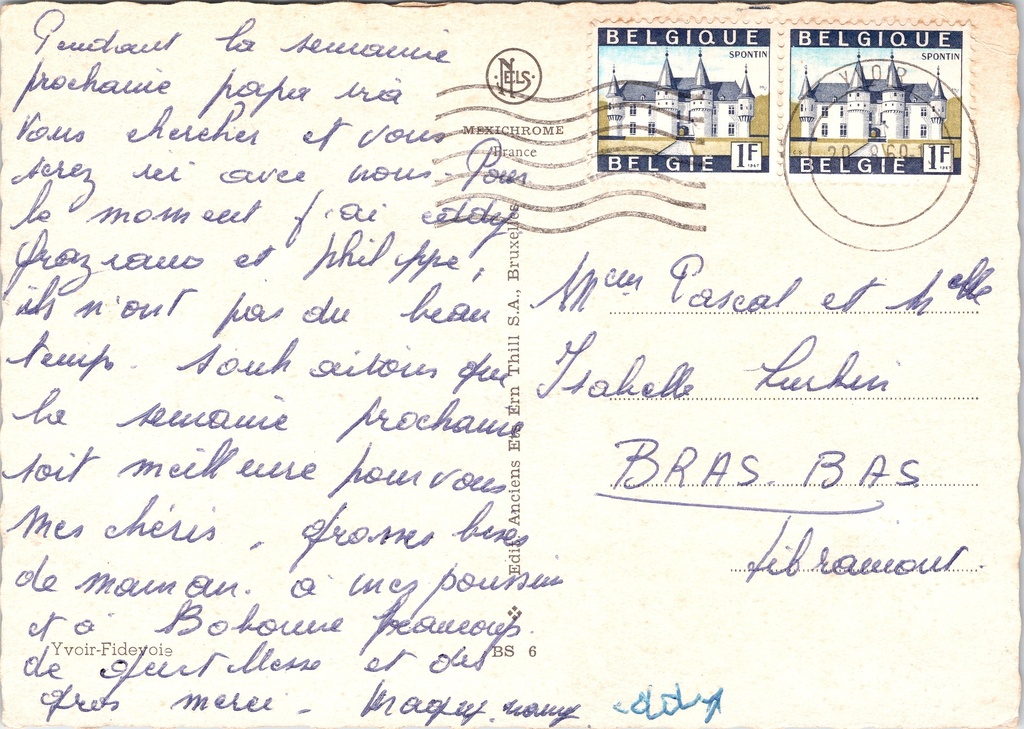 Pendant la semaine
prochaine papa ira
vous chercher et vous
serez ici avec nous. Pour
le moment j'ai eddy
graziano et philippe,
ils n'ont pas du beau
temps. Souhaitons que
la semaine prochaine
soit meilleure pour vous
mes chéris, grosses bises
de maman. à mes poussins
et à Bobonne beaucoup
de et des
gros merci - Maguy nony
eddy
NELS
MEXICHROME
France
Edit. Anciens Ets Ern Thill S.A., Bruxelles
Yvoir-Fidevoie
BS 6
BELGIQUE
SPONTIN
1F
1967
BELGIE
BELGIQUE
SPONTIN
1F
1967
BELGIE
YVOIR
Mr Pascal et Melle
Isabelle
BRAS-BAS
Libramont.